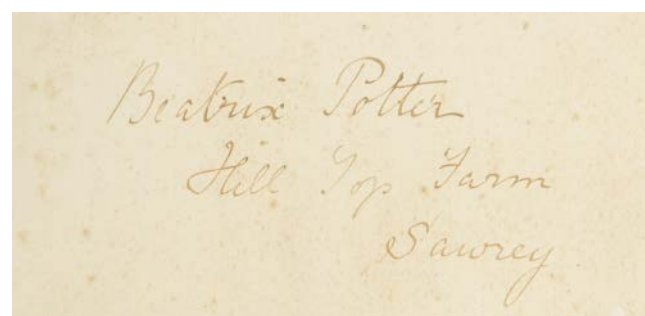 Beatrix Potter
Hill Top Farm
Sawrey